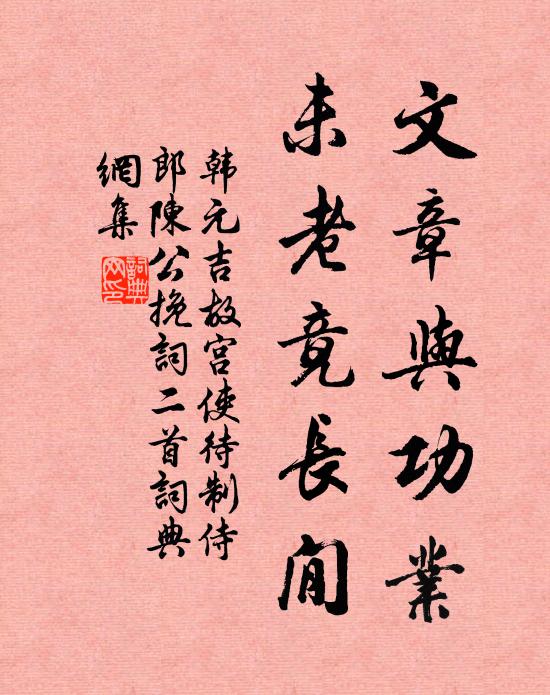 文章與功業
未老竟長閒
韩元吉故宫使待制侍
郎陳公挽詞二首詞典
網集
詞典
網印